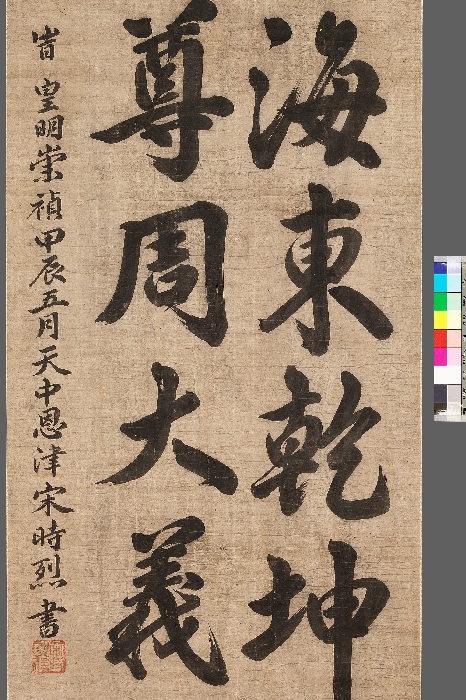 海東乾坤
尊周大義
旹 皇明崇禎甲辰五月天中恩津宋時烈書